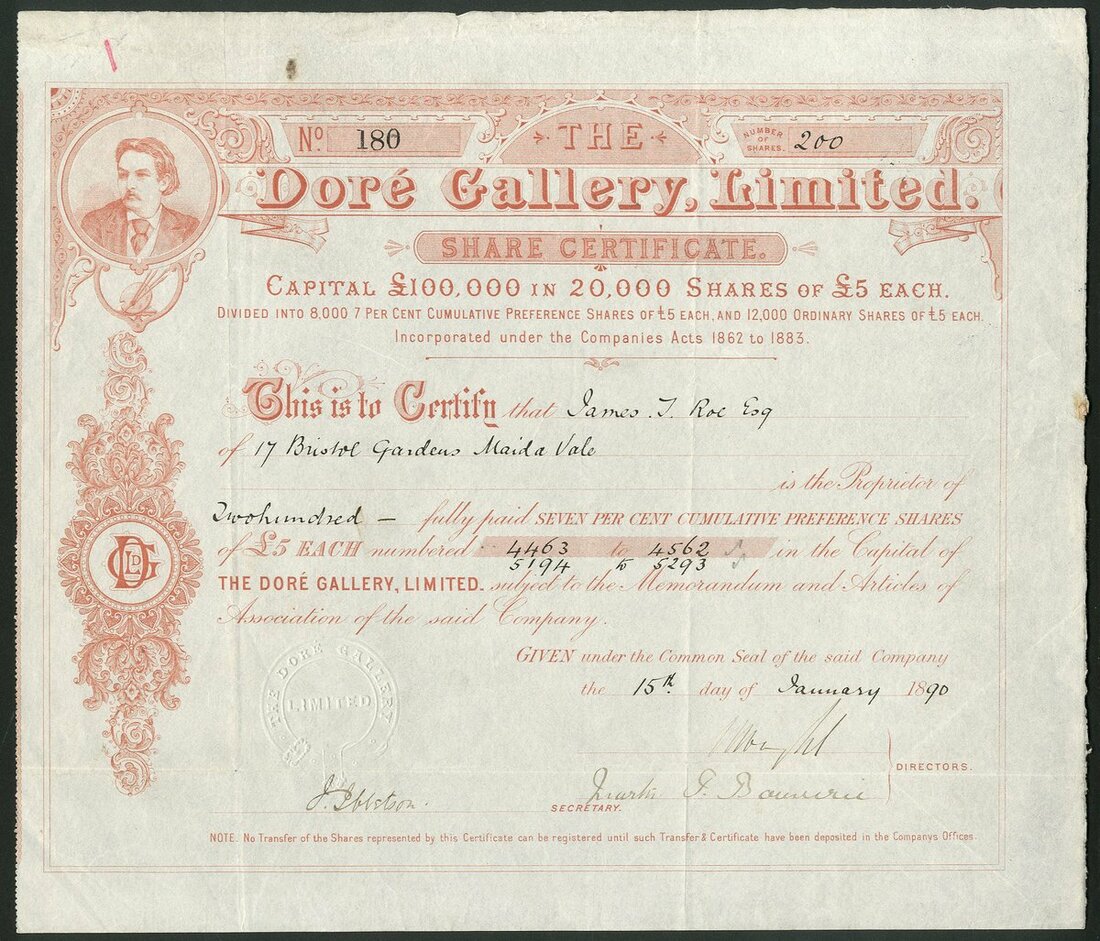 No. 180
THE
NUMBER OF SHARES. 200
Doré Gallery, Limited.
SHARE CERTIFICATE.
CAPITAL £100,000 IN 20,000 SHARES OF £5 EACH.
DIVIDED INTO 8,000 7 PER CENT CUMULATIVE PREFERENCE SHARES OF £5 EACH, AND 12,000 ORDINARY SHARES OF £5 EACH.
Incorporated under the Companies Acts 1862 to 1883.
This is to Certify that James T. Roe Esq
of 17 Bristol Gardens Maida Vale
is the Proprietor of
Two hundred — fully paid SEVEN PER CENT CUMULATIVE PREFERENCE SHARES
of £5 EACH numbered 4463 to 4562 in the Capital of
5194 to 5293
THE DORÉ GALLERY, LIMITED. subject to the Memorandum and Articles of
Association of the said Company.
GIVEN under the Common Seal of the said Company
the 15th. day of January 1890
THE DORÉ GALLERY
LIMITED
DIRECTORS.
J. Ibbetson.
SECRETARY.
F. Bouverie
NOTE. No Transfer of the Shares represented by this Certificate can be registered until such Transfer & Certificate have been deposited in the Companys Offices.
DG LD